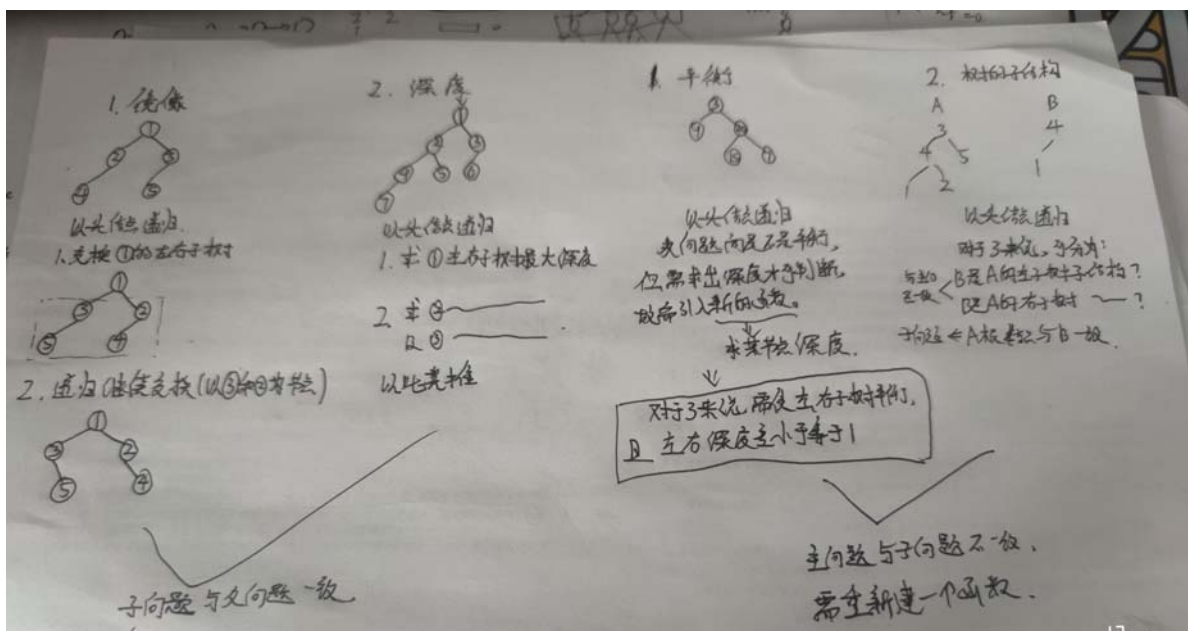 1. 镜像
①
② ③
④ ⑤
以头结点递归.
1. 交换①的左右子树
①
③ ②
⑤ ④
2. 递归继续交换(以③和②为节点)
①
③ ②
⑤ ④
2. 深度
①
② ③
④ ⑤ ⑥
⑦
以头结点递归
1. 求①左右子树最大深度
2. 求②
及③
以此类推
子问题与父问题一致
1. 平衡
③
⑨ ⑳
⑮ ⑦
以头结点递归
父问题问是不是平衡,
但需求出深度才可判断,
故需引入新的函数。
求某节点深度.
对于3来说,需使左右子树平衡,
且 左右深度差小于等于1
2. 树的子结构
A B
3 4
4 5 1
1 2
以头结点递归
对于3来说,可分为:
B是A的左子树子结构?
B是A的右子树 ?
子问题 ← A根 与B一致
主问题与子问题不一致.
需重新建一个函数.